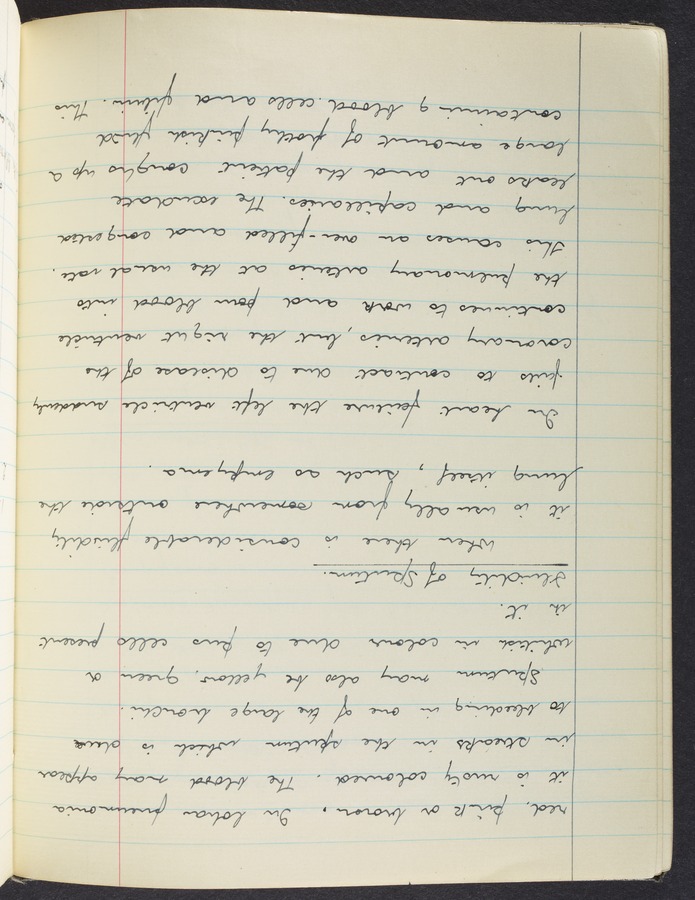 red, pink or brown. In lobar pneumonia
it is rusty coloured. The blood may appear
in streaks in the sputum which is due
to bleeding in one of the large bronchi.
Sputum may also be yellow, green or
whitish in colour due to pus cells present
in it.
Fluidity of Sputum.
When there is considerable fluidity
it is usually from somewhere outside the
lung itself, such as empyema.
In heart failure the left ventricle suddenly
fails to contract due to disease of the
coronary arteries, but the right ventricle
continues to work and pour blood into
the pulmonary arteries at the usual rate.
This causes an over-filled and congested
lung and capillaries. The exudate
leaks out and the patient coughs up a
large amount of frothy pinkish fluid
containing blood cells and fibrin. This